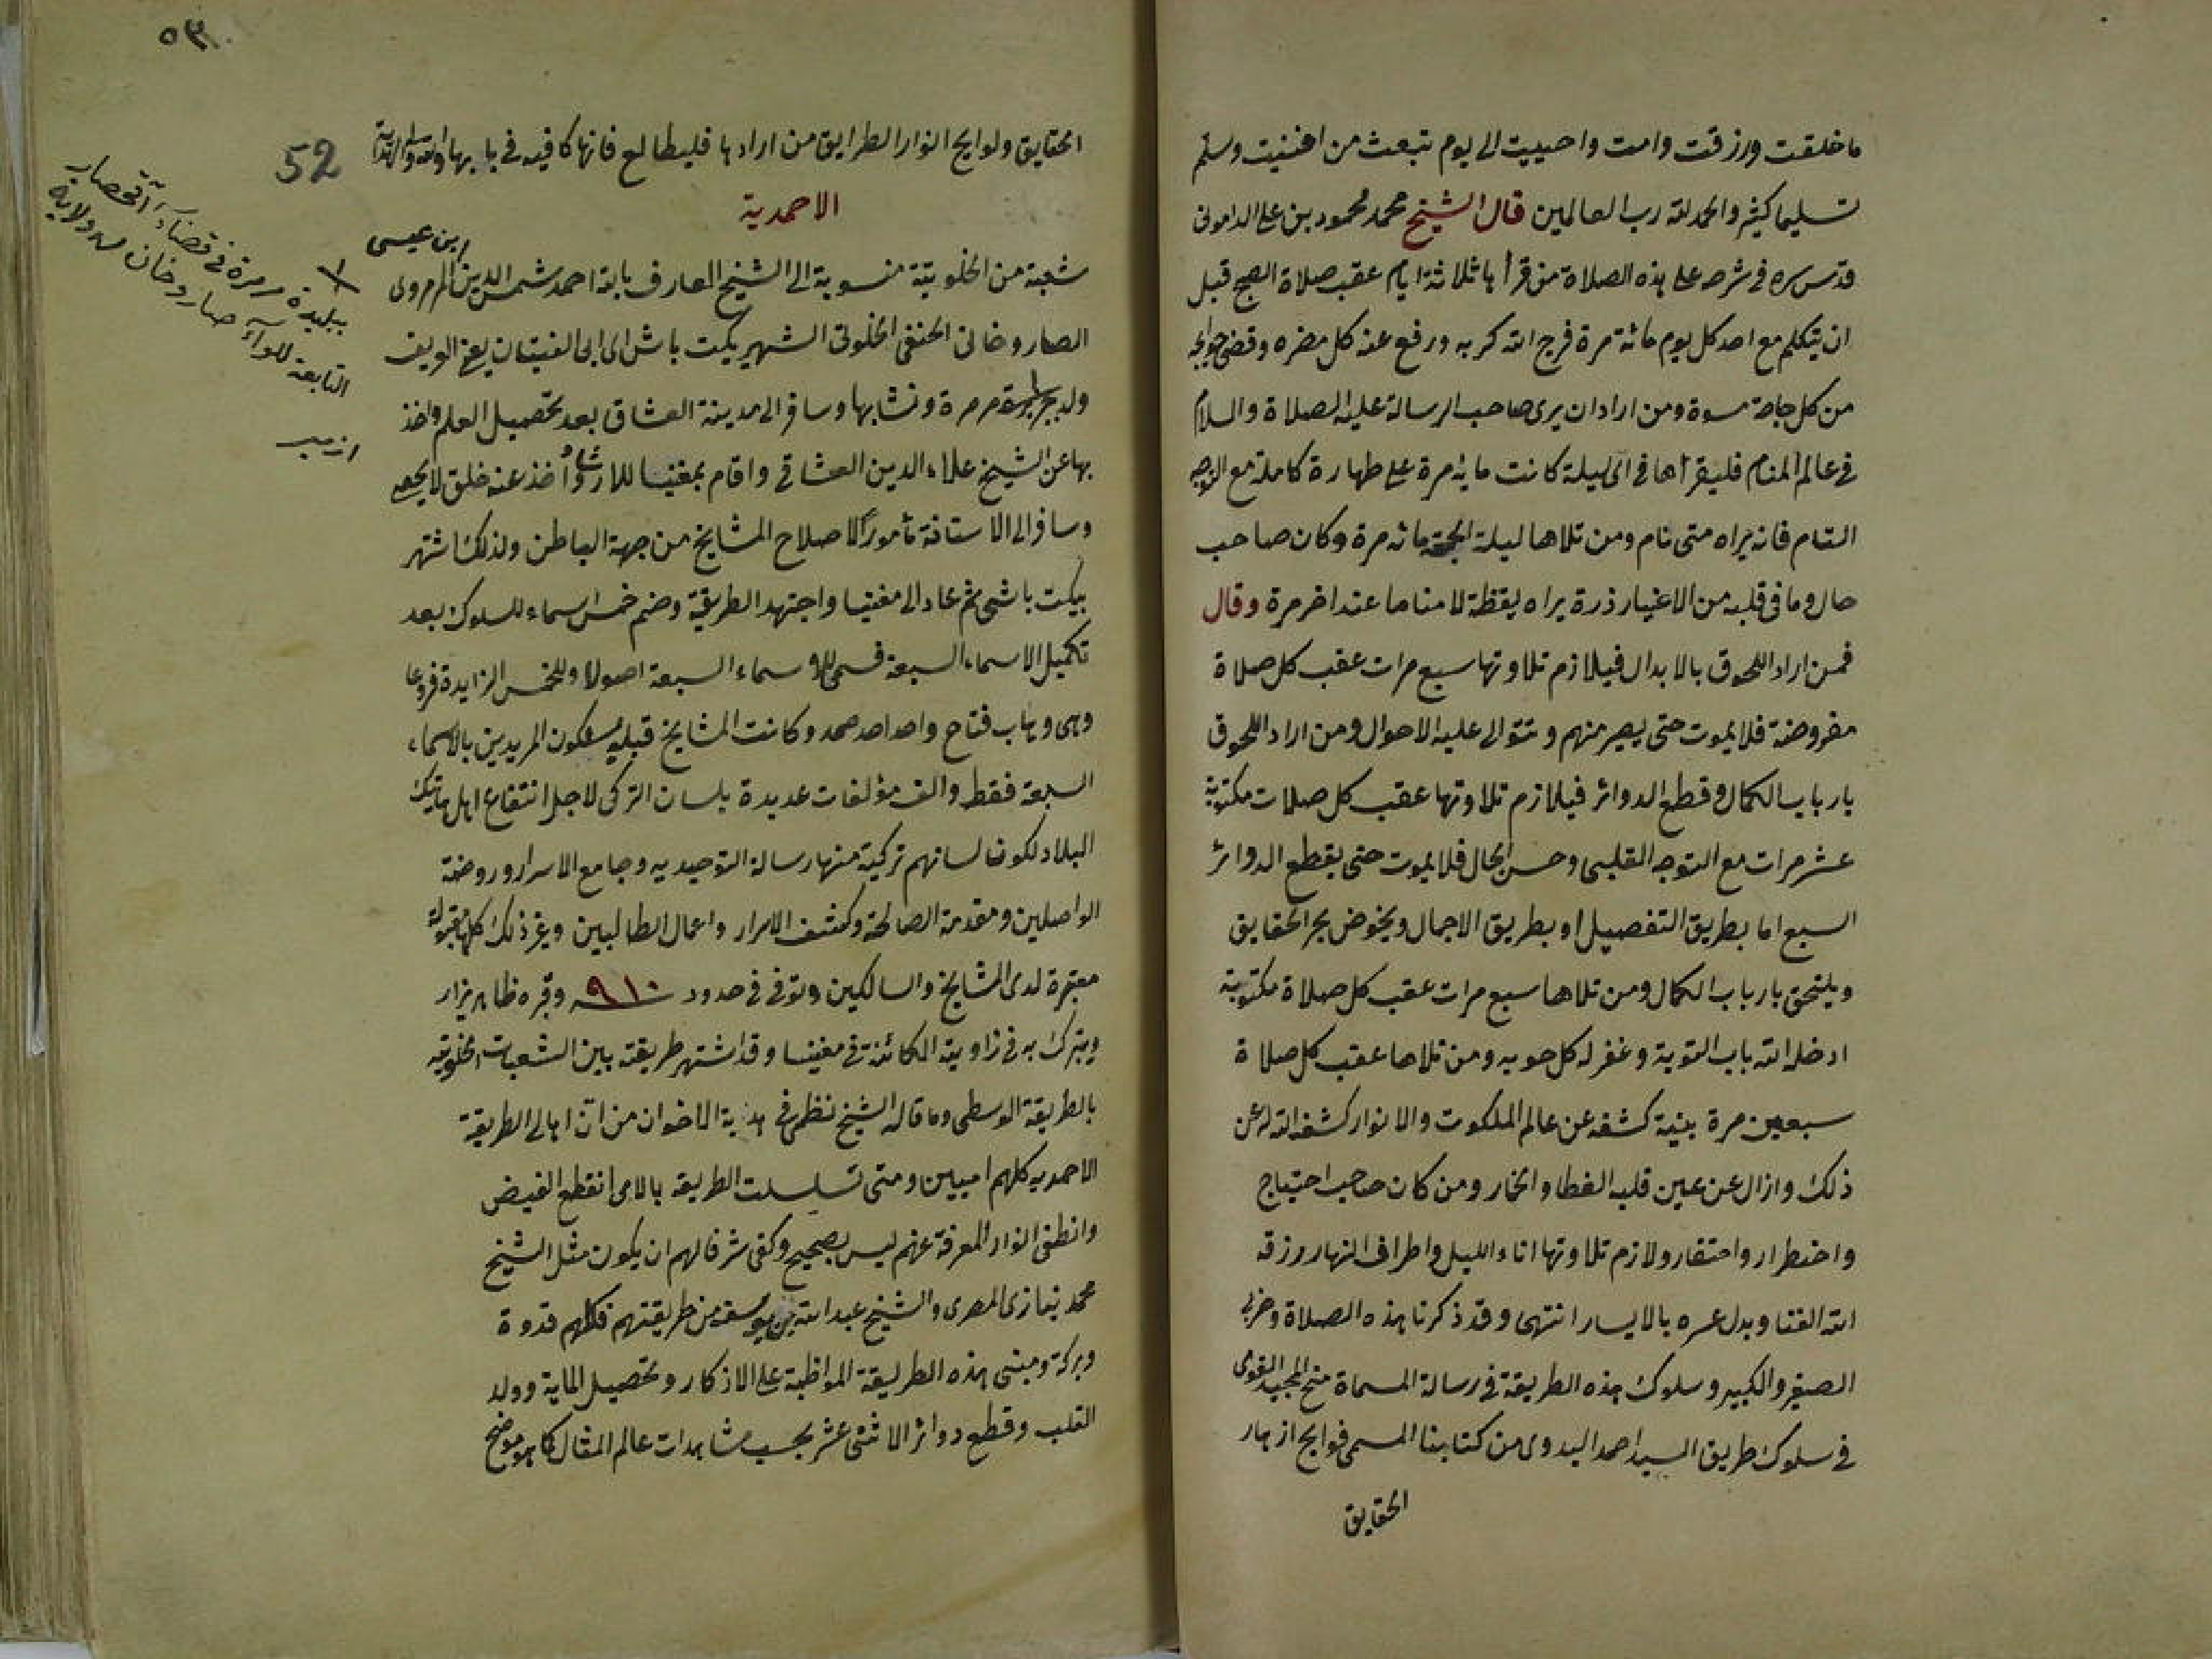 ما خلقت ورزقت وامت واحييت الى يوم تبعث من افنيت وسلم
تسليما كثيرا والحمد لله رب العالمين قال الشيخ محمد محمود بن على الدامونى
قدس سره فى شرحه على هذه الصلاة من قرأها ثلاثة ايام عقب صلاة الصبح قبل
ان يتكلم مع احد كل يوم مائة مرة فرج الله كربه ورفع عنه كل مضره وقضى حوايجه
من كل حاجة مسوة ومن اراد ان يرى صاحب الرسالة عليه الصلاة والسلام
فى عالم المنام فليقرأها فى اى ليلة كانت مايه مرة على طهارة كاملة مع التوجه
التام فانه يراه متى نام ومن تلاها ليلة الجمعة مائه مرة وكان صاحب
حال وما فى قلبه من الاغيار ذرة يراه يقظة لا مناما عند اخر مرة وقال
فمن اراد اللحوق بالابدال فيلازم تلاوتها سبع مرات عقب كل صلاة
مفروضة فلا يموت حتى يصير منهم وتتوالى عليه الاحوال ومن اراد اللحوق
بارباب الكمال وقطع الدوائر فيلازم تلاوتها عقب كل صلات مكتوبة
عشر مرات مع التوجه القلبى وحسن الحال فلا يموت حتى يقطع الدوائر
السبع اما بطريق التفصيل او بطريق الاجمال ويخوض بحر الحقايق
ويلتحق بارباب الكمال ومن تلاها سبع مرات عقب كل صلاة مكتوبة
ادخله الله باب التوبة وغفر له كل حوبه ومن تلاها عقب كل صلاة
سبعين مرة بنية كشفه عن عالم الملكوت والانوار كشف الله له عن
ذلك وازال عن عين قلبه الغطا والخمار ومن كان صاحب احتياج
واضطرار وافتقار ولازم تلاوتها اناء الليل واطراف النهار رزقه
الله الغنا وبدل عسره بالايسار انتهى وقد ذكرنا هذه الصلاة وحزبى
الصغير والكبير وسلوك هذه الطريقة فى رسالة المسماة منح المجيد القوى
فى سلوك طريق السيد احمد البدوى من كتابنا المسمى فوايح ازهار
الحقايق
٥٣
52
الحقايق ولوايح انوار الطرايق من ارادها فليطالع فانها كافيه فى بابها والله ولى الهداية
الاحمدية
شعبة من الخلوتية منسوبة الى الشيخ العارف بالله احمد شمس الدين ابن عيسى المرمروى
الصاروخانى الحنفى الخلوتى الشهير بيكت باش اى ابى الفتيان يعنى الويف
ولد بمرمرة ونشا بها وسافر الى مدينة العشاق بعد تحصيل العلم واخذ
بها عن الشيخ علاء الدين العشاقى واقام بمغنيسا للارشاد واخذ عنه خلق لا يحصى
وسافر الى الاستانة مأمورا لاصلاح المشايخ من جهة الباطن ولذلك اشتهر
بيكت باشى ثم عاد الى مغنيسا واجتهد الطريقة وضم خمس اسماء للسلوك بعد
تكميل الاسماء السبعة فسمى للاسماء السبعة اصولا وللخمس الزايدة فروعا
وهى وهاب فتاح واحد احد صمد وكانت المشايخ قبله يسلكون المريدين بالاسماء
السبعة فقط والف مؤلفات عديدة بلسان التركى لاجل انتفاع اهل هاتيك
البلاد لكون لسانهم تركية منها رسالة التوحيديه وجامع الاسرار وروضة
الواصلين ومقدمة الصالحة وكشف الاسرار واعمال الطالبين وغير ذلك كلها مقبولة
معتبرة لدى المشايخ والسالكين وتوفى فى حدود سنه ٩١٠ وقبره ظاهر يزار
ويتبرك به فى زاويته الكائنة فى مغنيسا وقد اشتهر طريقته بين الشعبات الخلوتيه
بالطريقة الوسطى وما قاله الشيخ نظمى فى هدية الاخوان من ان اهالى الطريقة
الاحمديه كلهم اميين ومتى تسلسلت الطريقه بالامى انقطع الفيض
وانطفى انوار المعرفة عنهم ليس بصحيح وكفى شرفا لهم ان يكون مثل الشيخ
محمد نيازى المصرى والشيخ عبد الله بن يوسف من طريقتهم فكلهم قدوة
وبركة ومبنى هذه الطريقة المواظبة على الاذكار وتحصيل الماية وولد
القلب وقطع دوائر الاثنى عشر بحسب مشاهدات عالم المثال كما هو موضح
ببليدة مرمرة فى قضاء آقحصار
التابعة للواء صاروخان من ولاية
ازمير